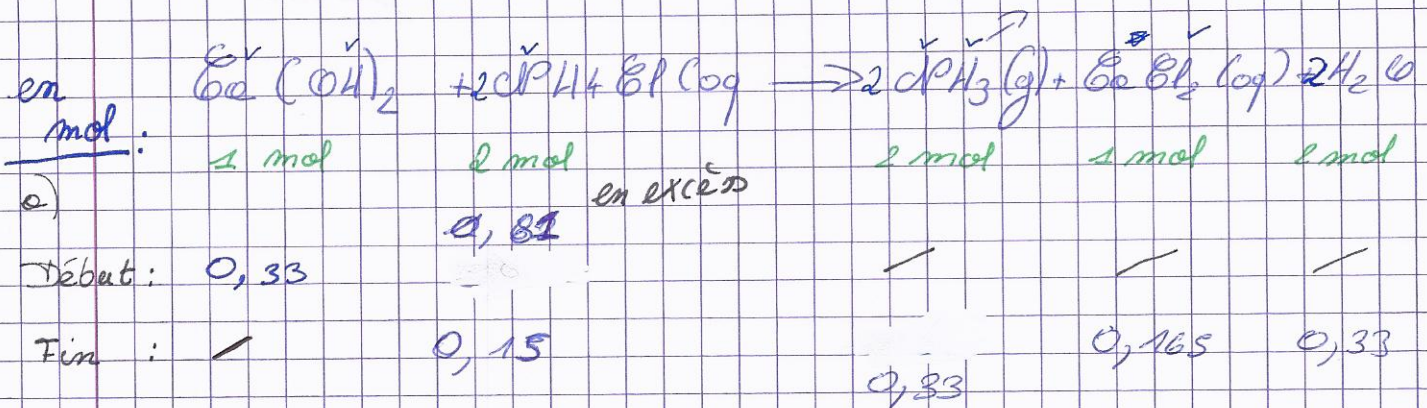 en Ca(OH)2 + 2 NH4Cl (aq → 2 NH3 (g) + CaCl2 (aq) + 2 H2O
mol :
1 mol 2 mol 2 mol 1 mol 2 mol
a) en excès
0,81
Début : 0,33 / / /
Fin : / 0,15 0,165 0,33
0,33